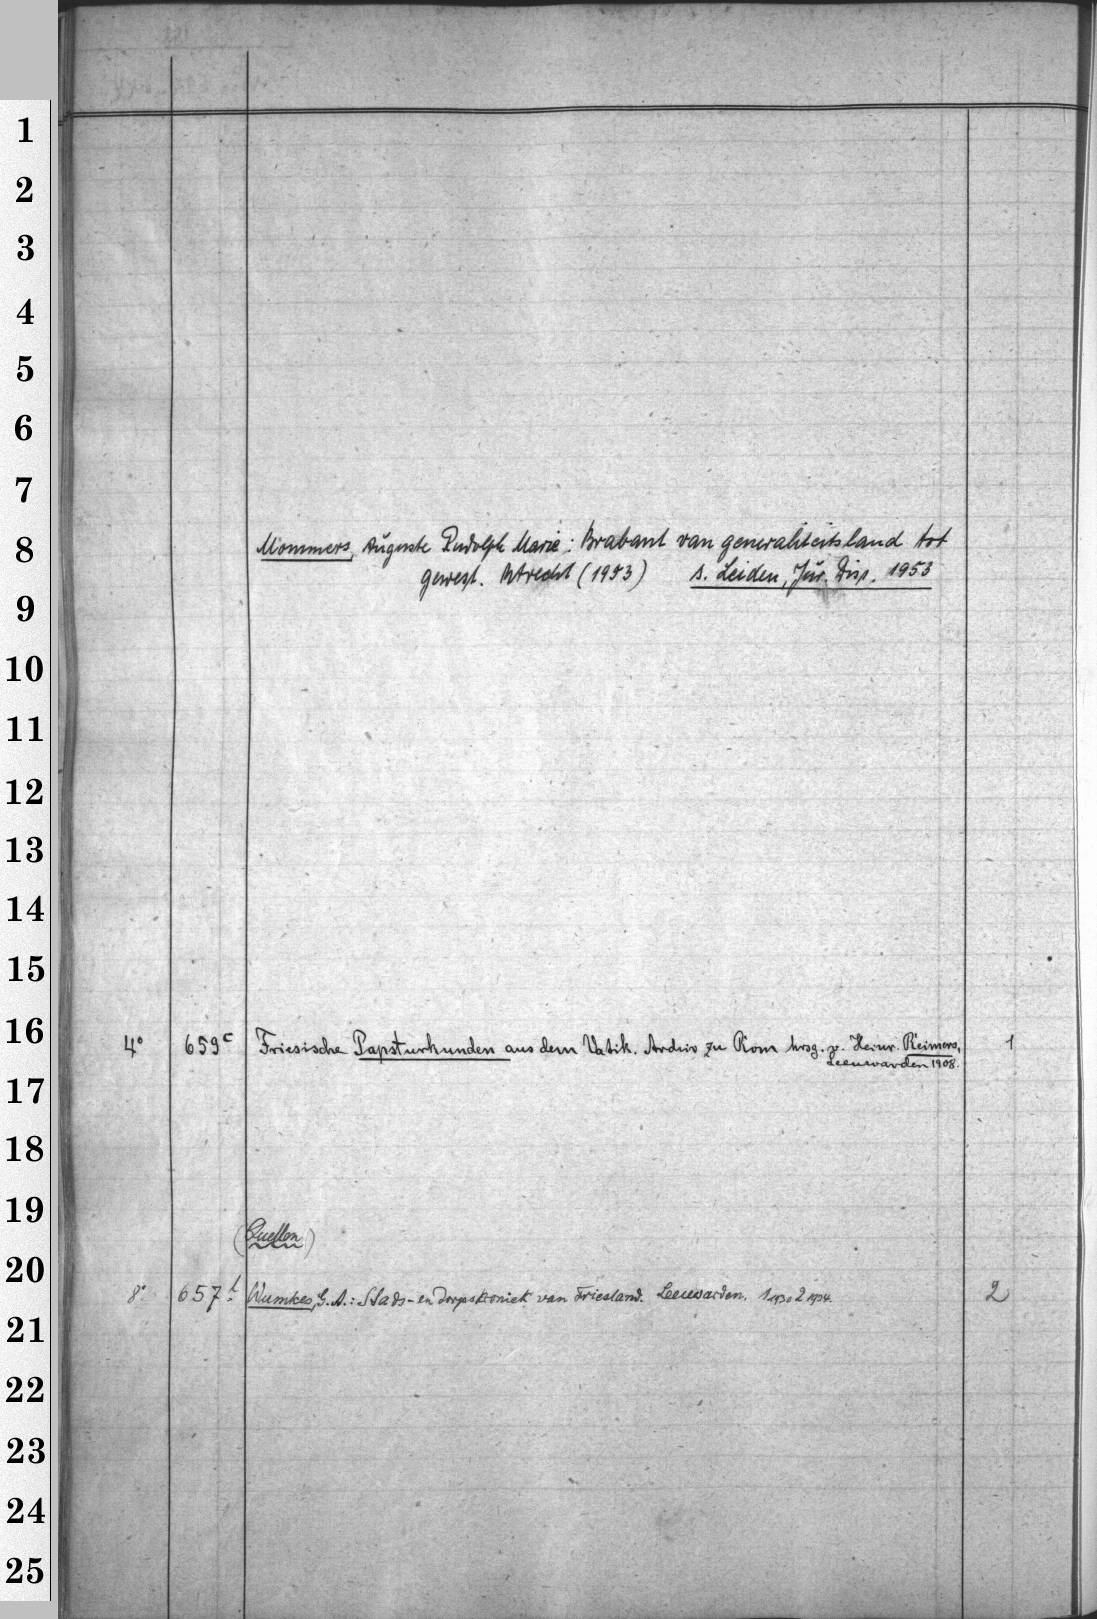 1
2
3
4
5
6
7
8
Mommers, Auguste Rudolph Marie: Brabant van generaliteitsland tot
gewest. Utrecht (1953) s. Leiden, Jur. Diss. 1953
9
10
11
12
13
14
15
16
4° 659c Friesische Papsturkunden aus dem Vatik. Archiv zu Rom hrsg. v. Heinr. Reimers, 1
Leeuwarden 1908.
17
18
19
(Quellen)
20
8° 657 Wumkes, G. A.: Stads- en Dorpskroniek van Friesland. Leeuwarden. 1 1930 2 1934. 2
21
22
23
24
25